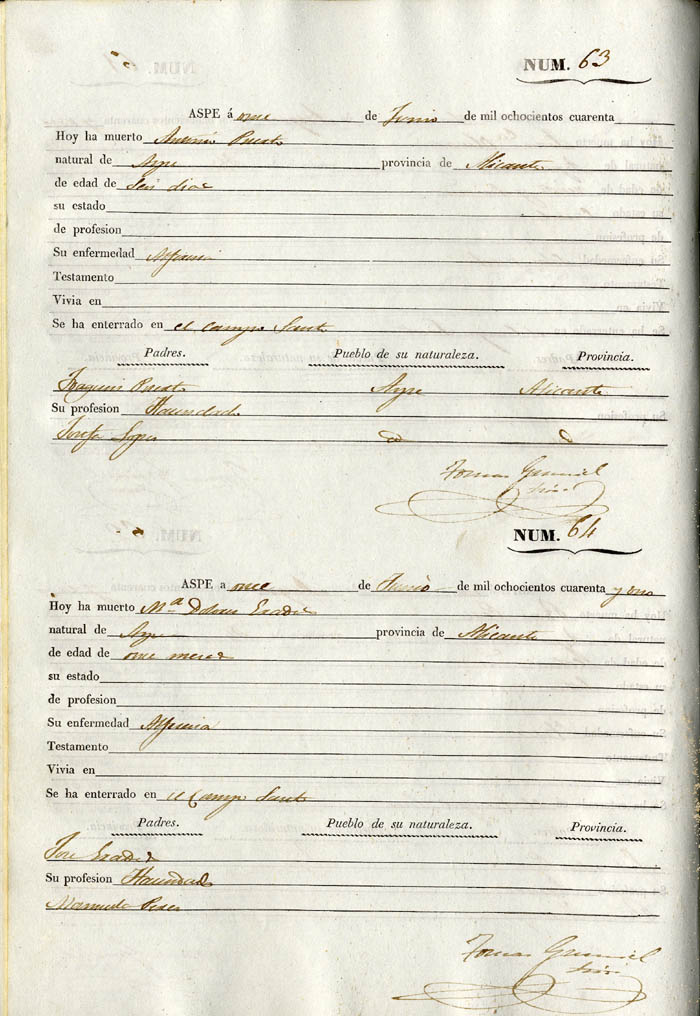 NUM. 63
ASPE á once de Junio de mil ochocientos cuarenta
Hoy ha muerto Antonio
natural de Aspe provincia de Alicante
de edad de seis dias
su estado
de profesion
Su enfermedad Alferecia
Testamento
Vivia en
Se ha enterrado en el Campo Santo
Padres. Pueblo de su naturaleza. Provincia.
Joaquin Aspe Alicante
Su profesion Hacendado
Josefa Lopez
Tomas
NUM. 64
ASPE a once de Junio de mil ochocientos cuarenta y uno
Hoy ha muerto Mª Dolores
natural de Aspe provincia de Alicante
de edad de once meses
su estado
de profesion
Su enfermedad Alferecia
Testamento
Vivia en
Se ha enterrado en el Campo Santo
Padres. Pueblo de su naturaleza. Provincia.
Jose
Su profesion Hacendado
Manuela Perez
Tomas